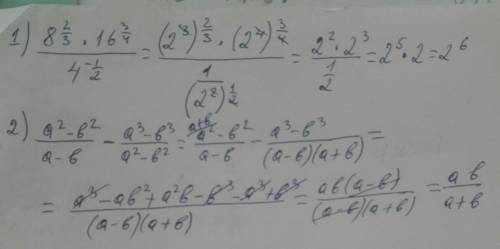 1) (8^(2/3) · 16^(3/4)) / 4^(-1/2) = ((2^3)^(2/3) · (2^4)^(3/4)) / (1 / (2^2)^(1/2)) = (2^2 · 2^3) / (1/2) = 2^5 · 2 = 2^6
2) (a^2 - b^2) / (a - b) - (a^3 - b^3) / (a^2 - b^2) = ^(a+b) (a^2 - b^2) / (a - b) - (a^3 - b^3) / ((a - b)(a + b)) =
= (a^3 - ab^2 + a^2b - b^3 - a^3 + b^3) / ((a - b)(a + b)) = ab(a - b) / ((a - b)(a + b)) = ab / (a + b)